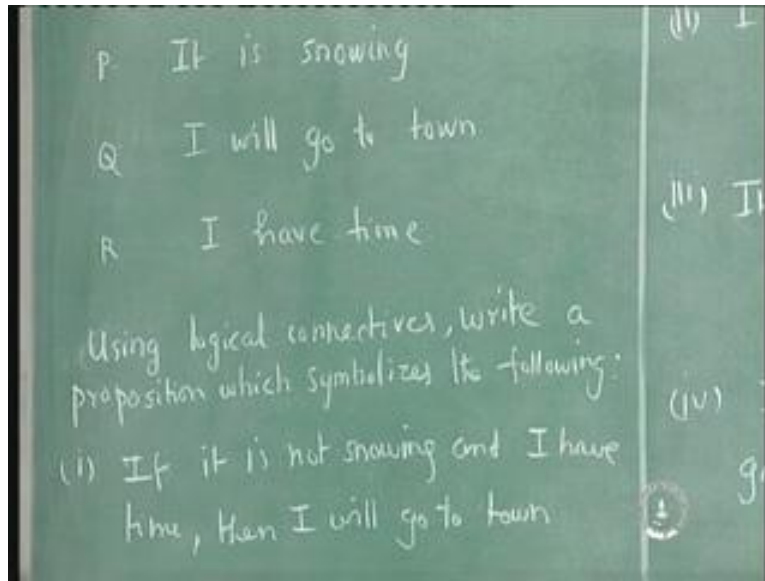 P It is snowing
Q I will go to town
R I have time
Using logical connectives, write a
proposition which symbolizes the following:
(i) If it is not snowing and I have
time, then I will go to town
(ii) I
(iii) It
(iv)